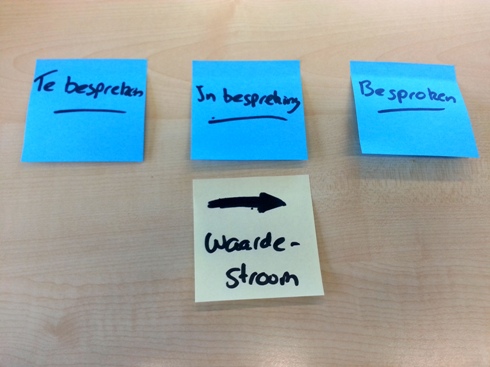 Te bespreken
In bespreking
Besproken
Waarde-
stroom